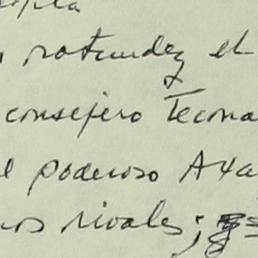 rotundez el
consejero Tecna
el poderoso Axa
nos rivales;